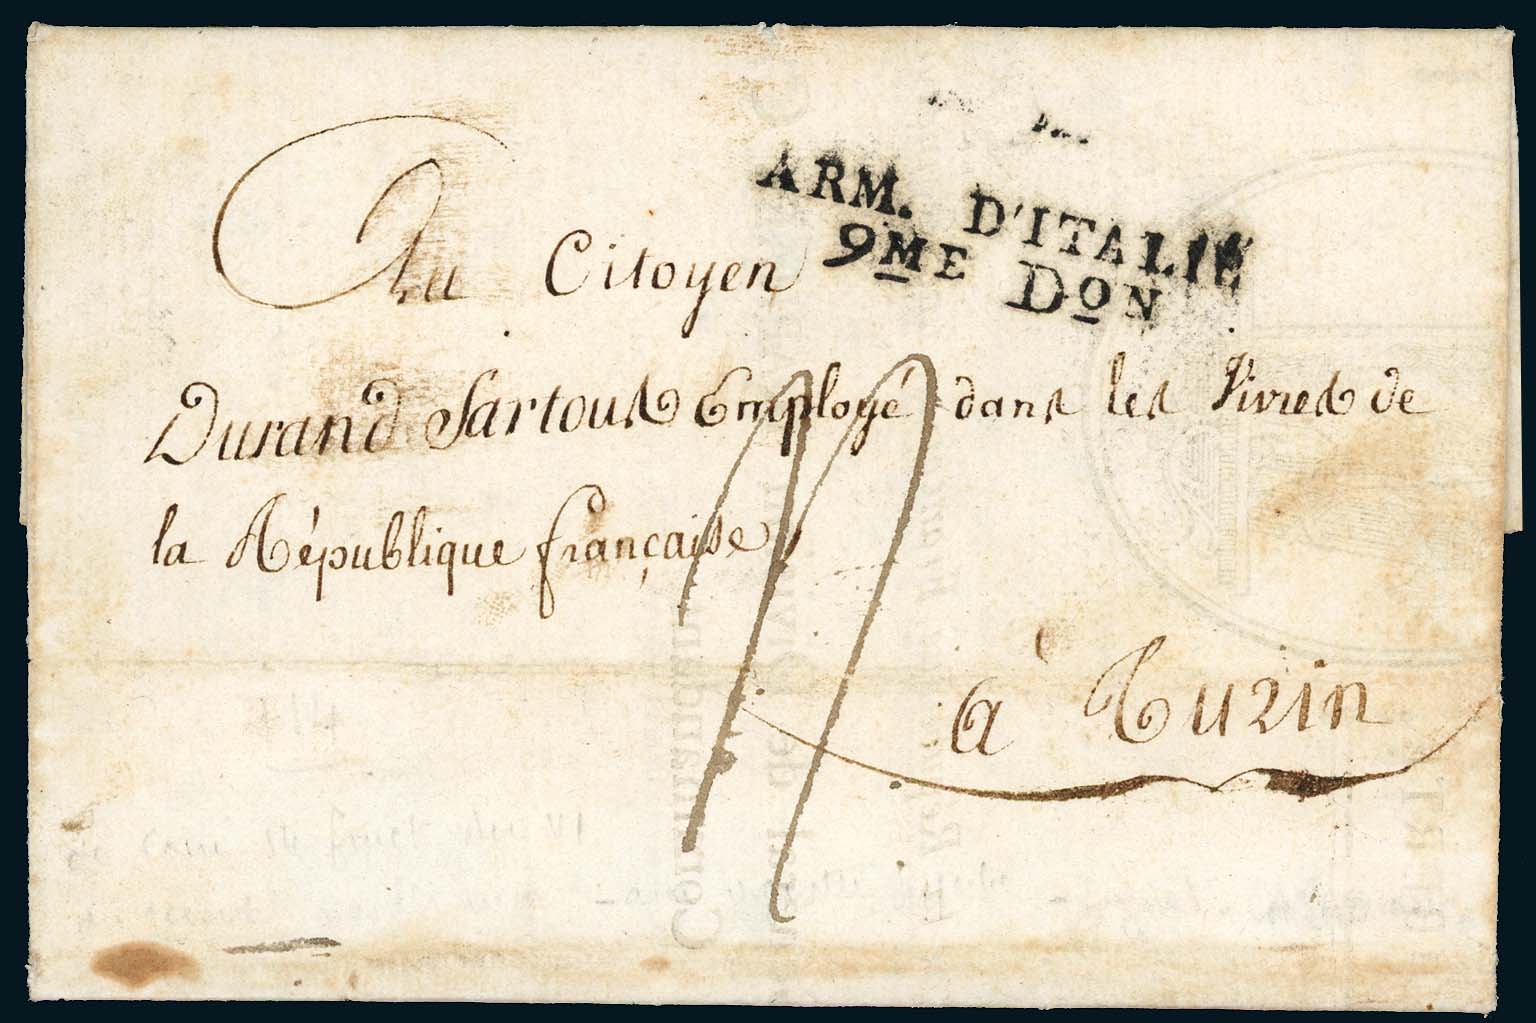 ARM. D'ITALIE
9ME DON
Au Citoyen
Durand Sartous Employé dans les Vivres de
la République française
à Turin